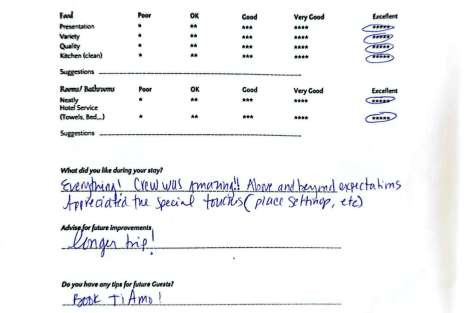 Food Poor OK Good Very Good Excellent
Presentation * ** *** **** *****
Variety * ** *** **** *****
Quality * ** *** **** *****
Kitchen (clean) * ** *** **** *****
Suggestions
Rooms/ Bathrooms Poor OK Good Very Good Excellent
Neatly * ** *** **** *****
Hotel Service
(Towels, Bed,..) * ** *** **** *****
Suggestions
What did you like during your stay?
Everything! Crew was amazing!! Above and beyond expectations
Appreciated the special touches (place settings, etc)
Advise for future improvements
longer trip!
Do you have any tips for future Guests?
Book Ti Amo!